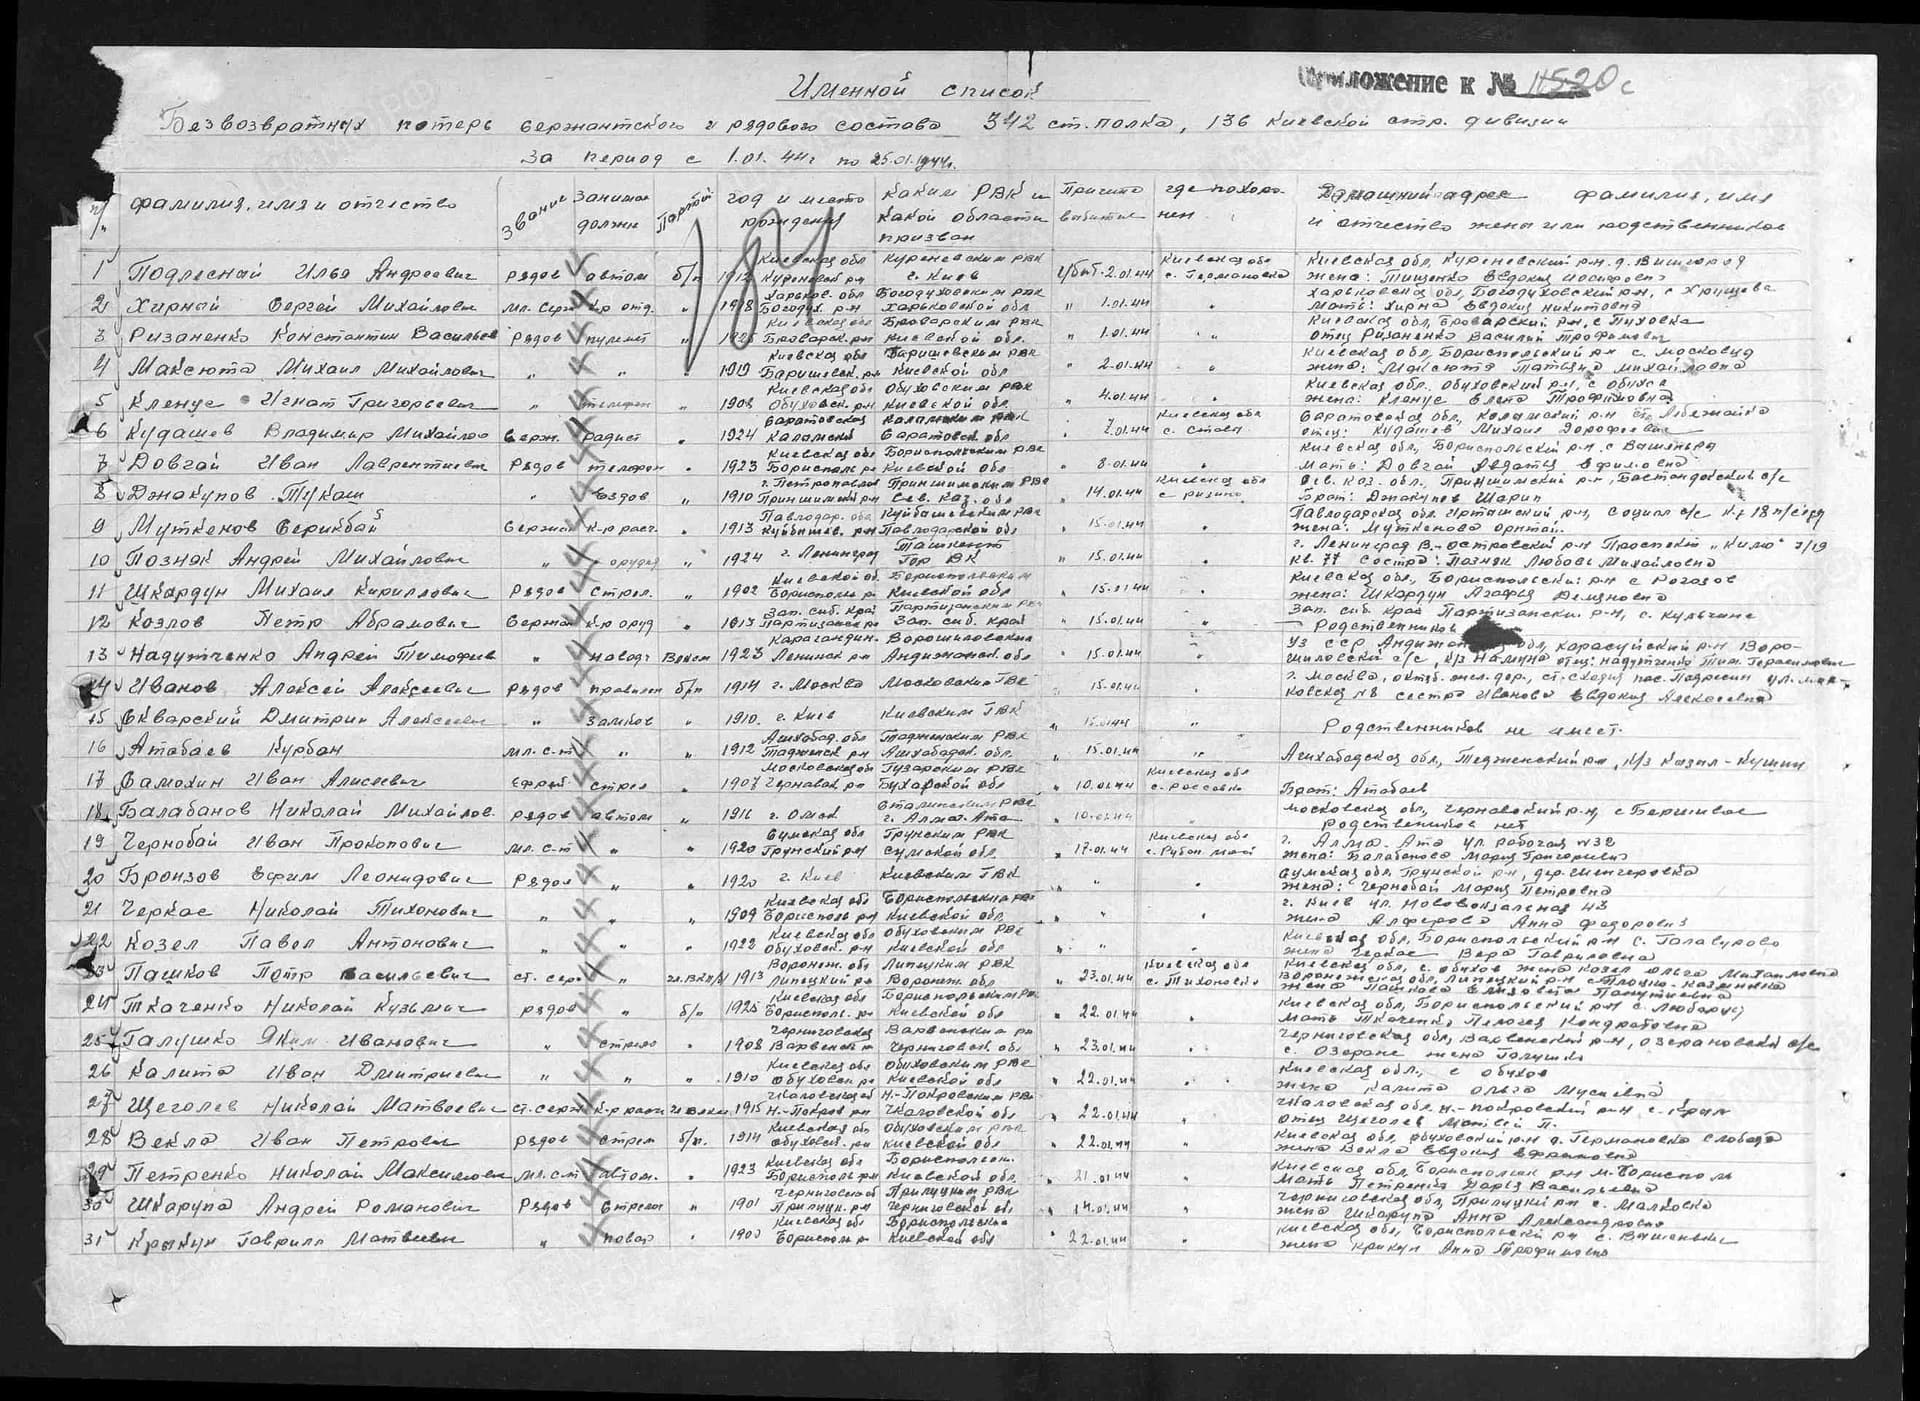 Именной список
Приложение к № 11520с
Безвозвратных потерь сержантского и рядового состава 342 ст. полка, 136 Киевской стр. дивизии
за период с 1.01.44г по 25.01.1944г.
фамилия, имя и отчество Звание Занимае должн Партий год и место рождения Каким РВК и какой области призван Причина выбытие где похоро- нен Домашний адрес фамилия, имя и отчество жены или родственников
Киевская обл Куреневским РВК Киевская обл Киевская обл, Куреневский р-н, д. Вишгород
1 Подлесный Илья Андреевич рядов автом б/п 1912 Куреневск р-н г. Киев убит 2.01.44 с. Германовка жена: Тищенко Евдокия
Харьков. обл Богодуховским РВК Харьковская обл, Богодуховский р-н, с Хрущева
2 Хирный Сергей Михайлович мл. Серж к-р отд. " 1918 Богодух. р-н Харьковской обл " 1.01.44 " Мать: Хирна Евдокия Никитовна
Киевская обл Броварским РВК Киевская обл, Броварский р-н, с Пуховка
3 Ризаненко Константин Васильев Рядов пулемет " Броварск. р-н Киевской обл. " 1.01.44 " отец Ризаненко Василий Трофимович
Киевская обл Баришевским РВК Киевская обл, Бориспольский р-н с.
4 Максюта Михаил Михайлович " " " 1919 Баришевск. р-н Киевской обл " 2.01.44 жена: Максюта Татьяна Михайловна
Киевская обл Обуховским РВК Киевская обл. Обуховский р-н, с Обухов
5 Кленус Игнат Григорьевич " телефон " 1908 Обуховск. р-н Киевской обл. " 4.01.44 жена: Кленус Елена Трофимовна
Саратовская Киевская обл Саратовская обл,
6 Кудашев Владимир Михайло Серж. радист " 1924 Саратовск. обл 2.01.44 с. Става отец: Кудашев Михаил Дорофеевич
Киевская обл Бориспольским РВК Киевская обл, Бориспольский р-н с
7 Довгай Иван Лаврентиевич Рядов телефон " 1923 Борисполь р-н Киевской обл " 8.01.44 " Мать: Довгай
г. Петропавлов Приишимским РВК Киевская обл Сев. каз. обл., Приишимский р-н,
8 Джакупов Тукаш " ездов " 1910 Приишимский р-н Сев. каз. обл " 14.01.44 Брат: Джакупов Шарип
Павлодар. обл Куйбышевским РВК Павлодарская обл. Иртышский р-н,
9 Муткенов Серикбай Сержан к-р расч. " 1913 Куйбышев. р-н Павлодарской обл " 15.01.44 " жена: Муткенова
г. Ленинград В.-островский р-н Проспект
10 Позняк Андрей Михайлович " орудия " 1924 г. Ленинград Ташкент Гор ВК " 15.01.44 " кв. 77 сестра: Позняк Любовь Михайловна
Киевской об. Бориспольским Киевская обл, Бориспольский р-н с Рогозов
11 Шкардун Михаил Кириллович Рядов стрел. " 1902 Борисполь р-н Киевской обл " 15.01.44 " жена: Шкардун Агафья Демяновна
Зап. сиб. край Партизанским РВК Зап. сиб. край Партизански р-н, с. Кульчине
12 Козлов Петр Абрамович Сержан к-р оруд " 1913 Партизанск р-н Зап. сиб. край " 15.01.44 " Родственников
Караганд. Ворошиловским Уз ССР Андижан обл, Карасуйский р-н Воро-
13 Надутченко Андрей Тимофив " наводч Влксм 1923 Ленинск р-н Андижанск. обл " 15.01.44 " шиловский с/с,
14 Иванов Алексей Алексеевич Рядов правилен б/п 1914 г. Москва Московским ГВК 15.01.44 " сестра Иванова Евдокия Алексеевна
15 Скварский Дмитрий Алексеевич " замков " 1910. г. Киев Киевским ГВК " 15.01.44 " Родственников не имеет.
Ашхабад. обл Тадженским РВК
16 Атабаев Курбан мл. с-т " " 1912 Тадженск р-н Ашхабадск. обл. " 15.01.44 " Ашхабадская обл, Тедженский р-н, к/з Кызыл-
Московская об Гузарским РВК Киевская обл
17 Самохин Иван Алисеевич Ефрей стрел " 1907 Чернавск р-н Бухарской обл " 10.01.44 с. Россовка Брат: Атабаев
Сталинским РВК Московская обл, Чернавский р-н,
18 Балабанов Николай Михайлов. рядов автом " 1916 г. Омск г. Алма-Ата " 10.01.44 родственников нет
Сумская обл Грунским РВК Киевская обл г. Алма-Ата ул. рабочая №32
19 Чернобай Иван Прокопович мл. с-т " " 1920 Грунский р-н Сумской обл. " 17.01.44 жена: Балабанова Мария Григорьевна
Сумская обл, Грунской р-н,
20 Бронзов Ефим Леонидович Рядов " " 1920 г. Киев Киевским ГВК " " " жена: Чернобай Мария Петровна
Киевская обл Бориспольским РВК г. Киев ул. Нововокзальная 43
21 Черкас Николай Тихонович " " " 1909 Борисполь р-н Киевской обл. " " " жена Алферова Анна Федоровна
Киевская обл Обуховским РВК Киевская обл, Бориспольский р-н с.
22 Козел Павел Антонович " " " 1922 Обуховск. р-н Киевской обл " " " жена Черкас Вера Гавриловна
Воронеж. обл Липецким РВК Киевская обл Киевская обл, с. Обухов жена Козел Ольга Михайловна
23 Пашков Петр Васильевич ст. серж " чл. ВКП/б/ 1913 Липецкий р-н Воронеж. обл " 23.01.44 с. Тихоновка Воронежская обл, Липецкий р-н
Киевская обл Бориспольским РВК Киевская обл, Бориспольский р-н с. Любарцы
24 Ткаченко Николай Кузьмич рядов " б/п 1925 Борисполь. р-н Киевской обл " 22.01.44 " Мать Ткаченко Пелагея Кондратовна
Черниговская Варвенским р-н Черниговская обл, Варвенский р-н, Озеряновский с/с
25 Галушко Яким Иванович " стрело " 1908 Варвенск р-н Черниговск. обл " 23.01.44 " с. Озеряне жена Галушко
Киевская обл Обуховским РВК Киевская обл, с Обухов
26 Калита Иван Дмитриевич " " " 1910 Обуховск р-н Киевской обл " 22.01.44 " жена Калита Ольга
Чкаловской об Н.-Покровским РВК Чкаловская обл. Н.-Покровский р-н с.
27 Щеголев Николай Матвоевич ст. серж к-р расч чл ВЛКСМ 1915 Н.-Покров р-н Чкаловской обл " 22.01.44 " отец Щеголев Матвей П.
Киевская обл Обуховским РВК Киевская обл, Обуховский р-н д. Германовка слобода
28 Векла Иван Петрович рядов стрел б/п. 1914 Обуховск. р-н Киевской обл " 22.01.44 " жена Векла Евдокия Ефимовна
Киевская обл Бориспольск. Киевская обл, Борисполь р-н м. Борисполь
29 Петренко Николай Максимович мл. с-т автом. " 1923 Борисполь р-н Киевской обл. " 21.01.44 " Мать Петренко Мария Васильевна
Черниговской Прилуцким РВК Черниговская обл, Прилуцкий р-н с. Малковка
30 Шкарупа Андрей Романович Рядов стрелок " 1901 Прилуцк. р-н Черниговской об " 14.01.44 " жена Шкарупа Анна Александровна
Киевская об Бориспольским Киевская обл, Бориспольский р-н с. Вишеньки
31 Крыкун Гаврил Матвеевич " повар " 1900 Борисполь р-н Киевской обл " 22.01.44 " жена Крикун Анна Трофимовна